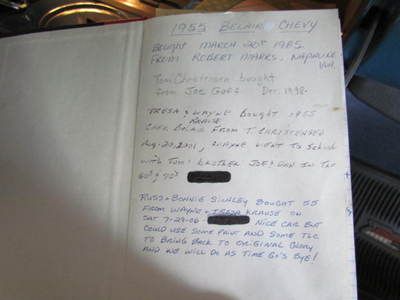 1955 BELAIR CHEVY
Bought MARCH 20th 1985.
FROM ROBERT MARKS,
Tom Christensen bought
from Joe Goff Dec 1998.
TRESA & WAYNE BOUGHT 1955
KRAUSE
CHEV BELAIR FROM T. CHRISTENSEN
Aug-20-2001, WAYNE WENT TO School
WITH TOM' BROTHER JOE & DAN IN THE
60's 70's
RUSS & BONNIE BOUGHT 55
FROM WAYNE & TRESA KRAUSE ON
SAT 7-29-06 NICE CAR BUT
COULD USE SOME PAINT AND SOME TLC
TO BRING BACK TO ORIGINAL GLORY
AND WE WILL DO AS TIME GO'S BYE!